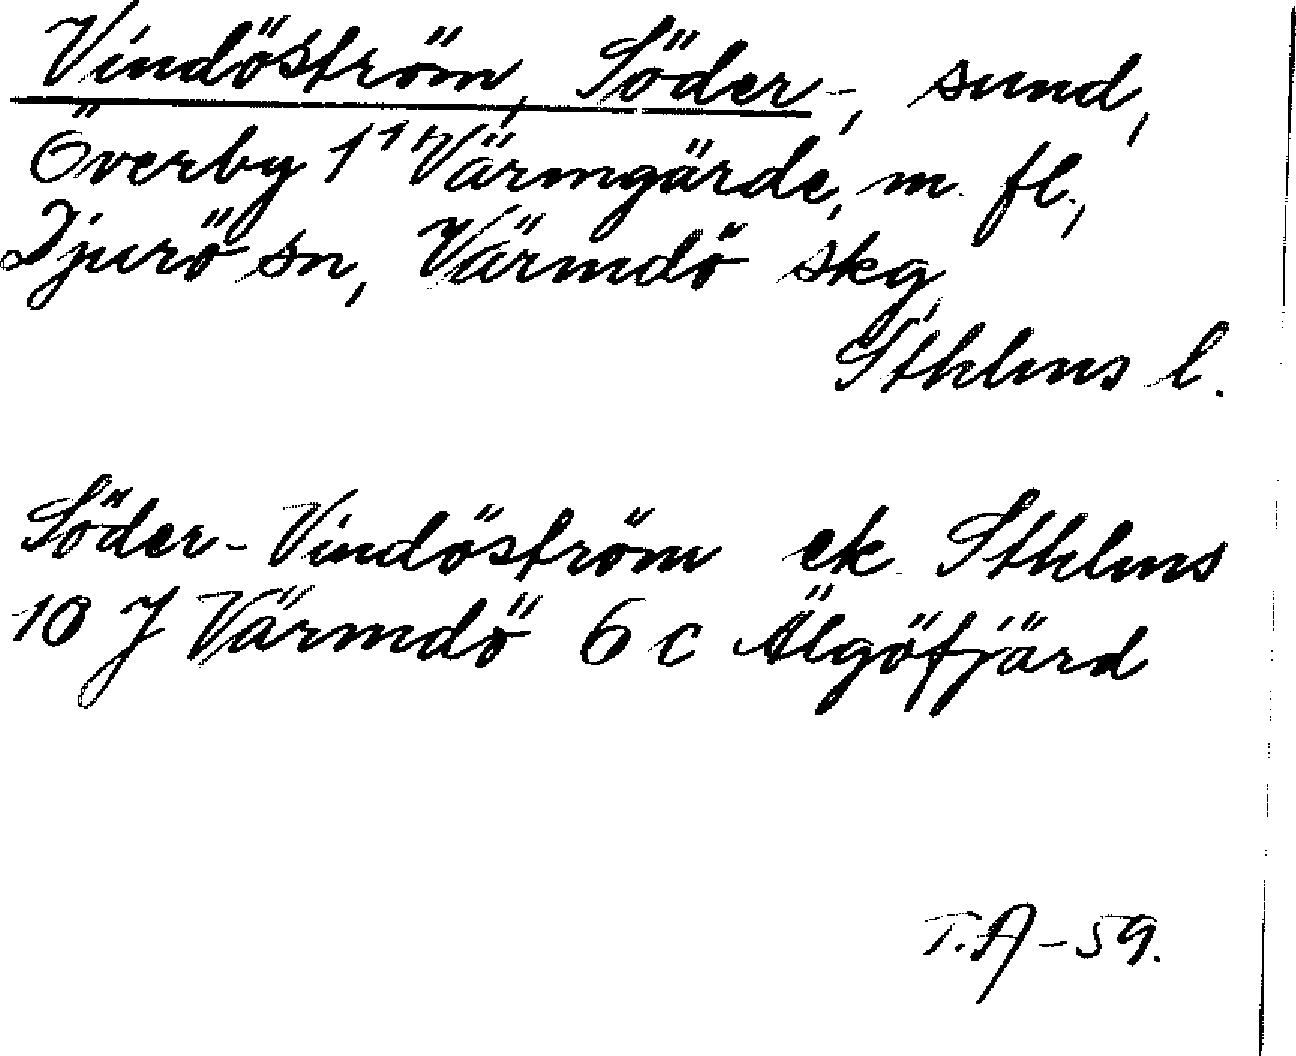 Vindöström, Söder-, sund,
Överby 1¹ Värmgärde, m. fl.,
Djurö sn, Värmdö skg
Sthlms l.
Söder-Vindöström ek Sthlms
10 J Värmdö 6 c Älgöfjärd
T.A-59.